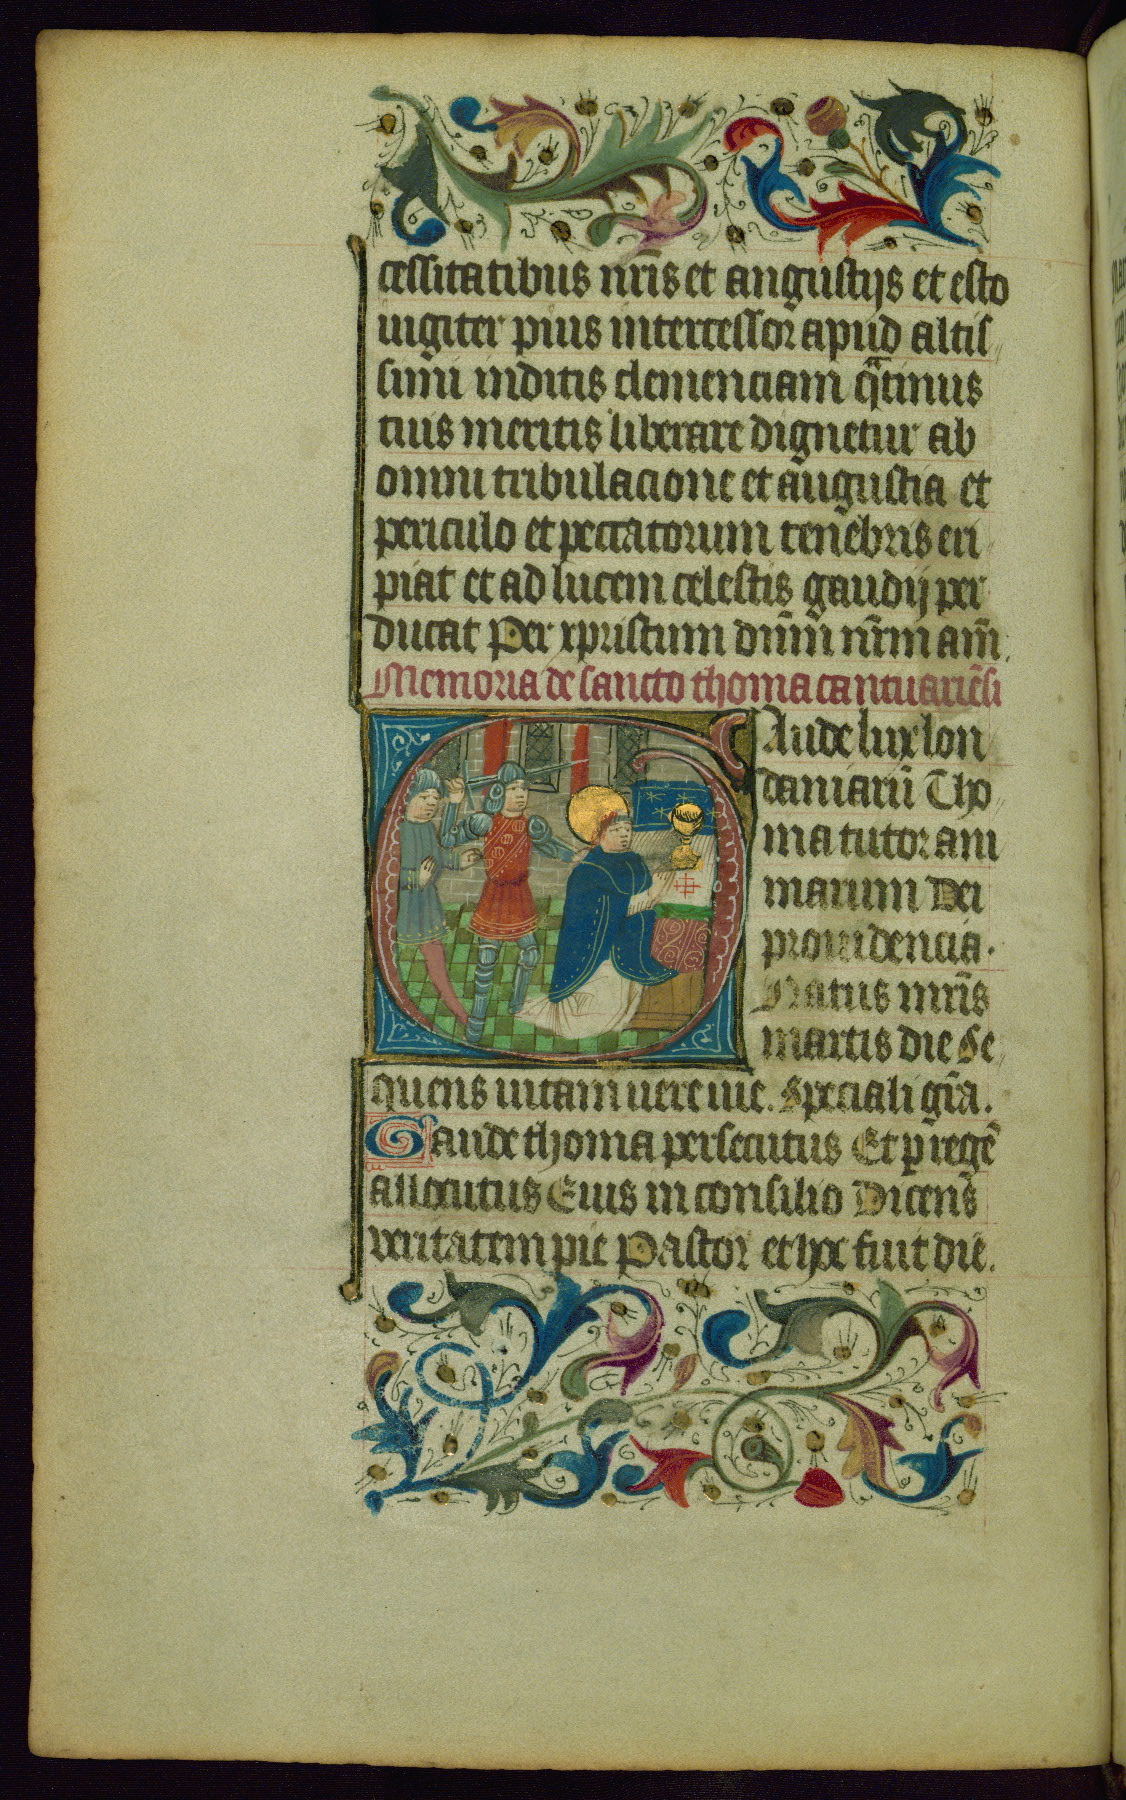 cessitatibus nr̄is et angustijs et esto
iugiter pius intercessor apud altis
simi inditis clemenciam q̄tinus
tuis meritis liberare dignetur ab
omni tribulacione et angustia et
periculo et peccatorum tenebris eri
piat et ad lucem celestis gaudij per
ducat Per xpristum dn̄m nr̄m am̄.
Memoria de sancto thoma cantuariēsi
Aude lux lon
daniarū Tho
ma tutor ani
marum Dei
prouidencia.
Natus mr̄is
martis die Se
quens uitam uere uie. Speciali gr̄a.
Gaude thoma persecutus Et p̄ regē
allocutus Eius in consilio Dicens
veritatem pie Pastor et hoc fuit die.